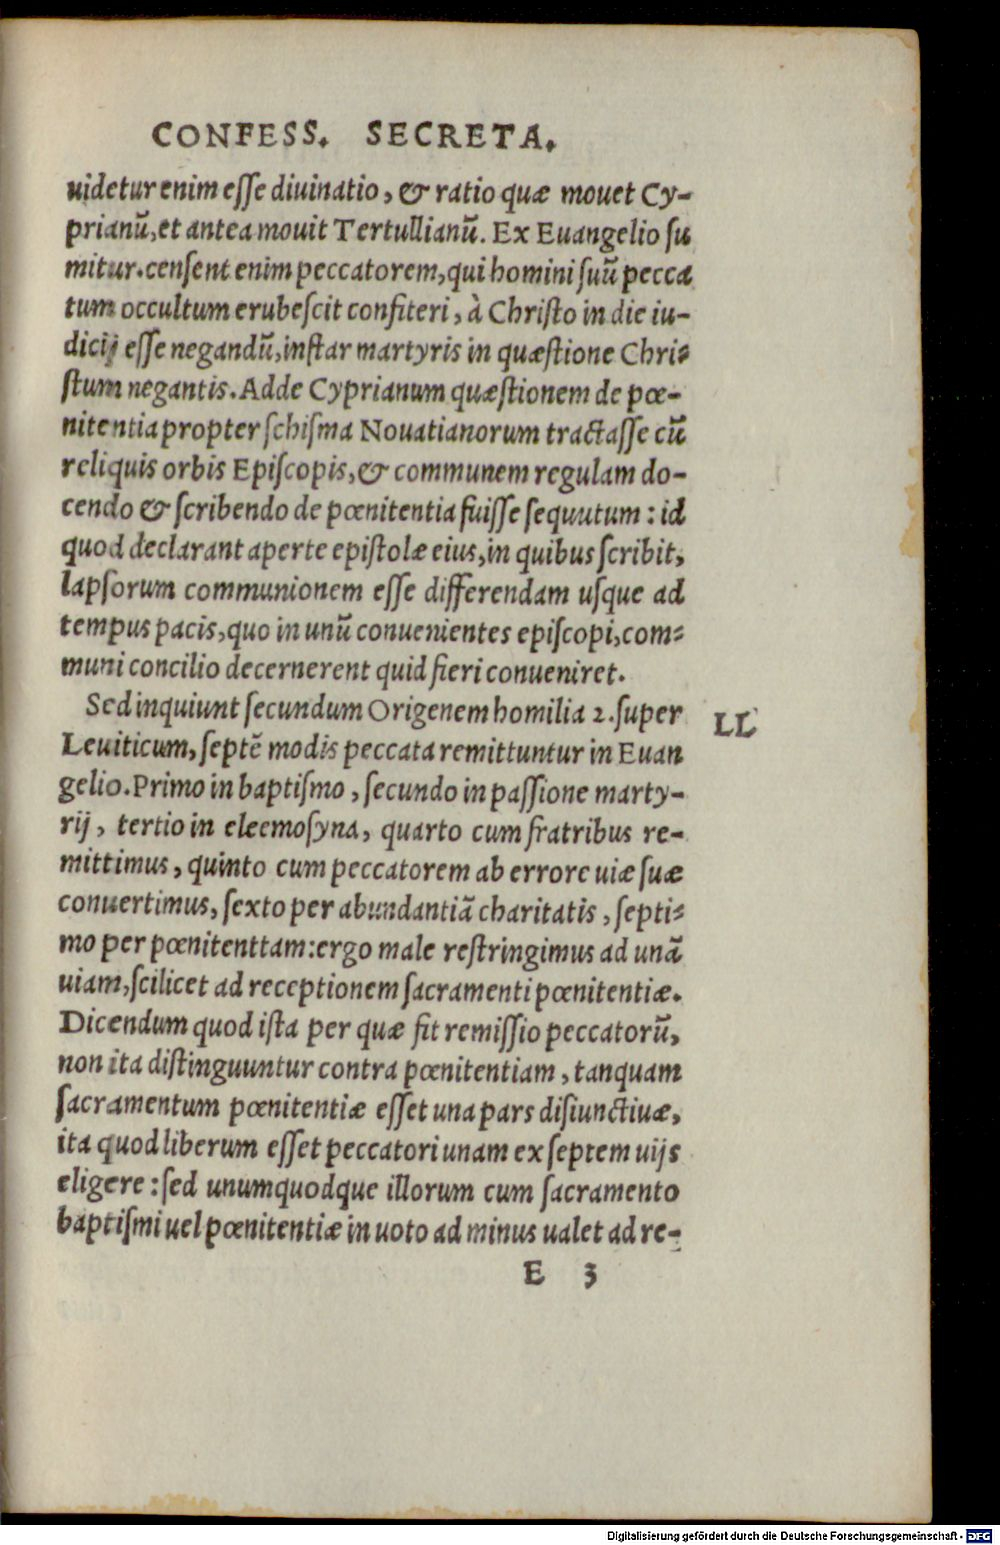 CONFESS. SECRETA.
uidetur enim esse diuinatio, & ratio quæ mouet Cy-
prianũ, et antea mouit Tertullianũ. Ex Euangelio su
mitur. censent enim peccatorem, qui homini suũ pecca
tum occultum erubescit confiteri, à Christo in die iu-
dicij esse negandũ, instar martyris in quæstione Chri-
stum negantis. Adde Cyprianum quæstionem de pœ-
nitentia propter schisma Nouatianorum tractasse cũ
reliquis orbis Episcopis, & communem regulam do-
cendo & scribendo de pœnitentia fuisse sequutum: id
quod declarant aperte epistolæ eius, in quibus scribit,
lapsorum communionem esse differendam usque ad
tempus pacis, quo in unũ conuenientes episcopi, com-
muni concilio decernerent quid fieri conueniret.
Sed inquiunt secundum Origenem homilia 2. super
LL
Leuiticum, septẽ modis peccata remittuntur in Euan
gelio. Primo in baptismo, secundo in passione marty-
rij, tertio in eleemosyna, quarto cum fratribus re-
mittimus, quinto cum peccatorem ab errore uiæ suæ
conuertimus, sexto per abundantiã charitatis, septi-
mo per pœnitenttam: ergo male restringimus ad unã
uiam, scilicet ad receptionem sacramenti pœnitentiæ.
Dicendum quod ista per quæ fit remissio peccatorũ,
non ita distinguuntur contra pœnitentiam, tanquam
sacramentum pœnitentiæ esset una pars disiunctiuæ,
ita quod liberum esset peccatori unam ex septem uijs
eligere: sed unumquodque illorum cum sacramento
baptismi uel pœnitentiæ in uoto ad minus ualet ad re-
E 3
Digitalisierung gefördert durch die Deutsche Forschungsgemeinschaft - DFG